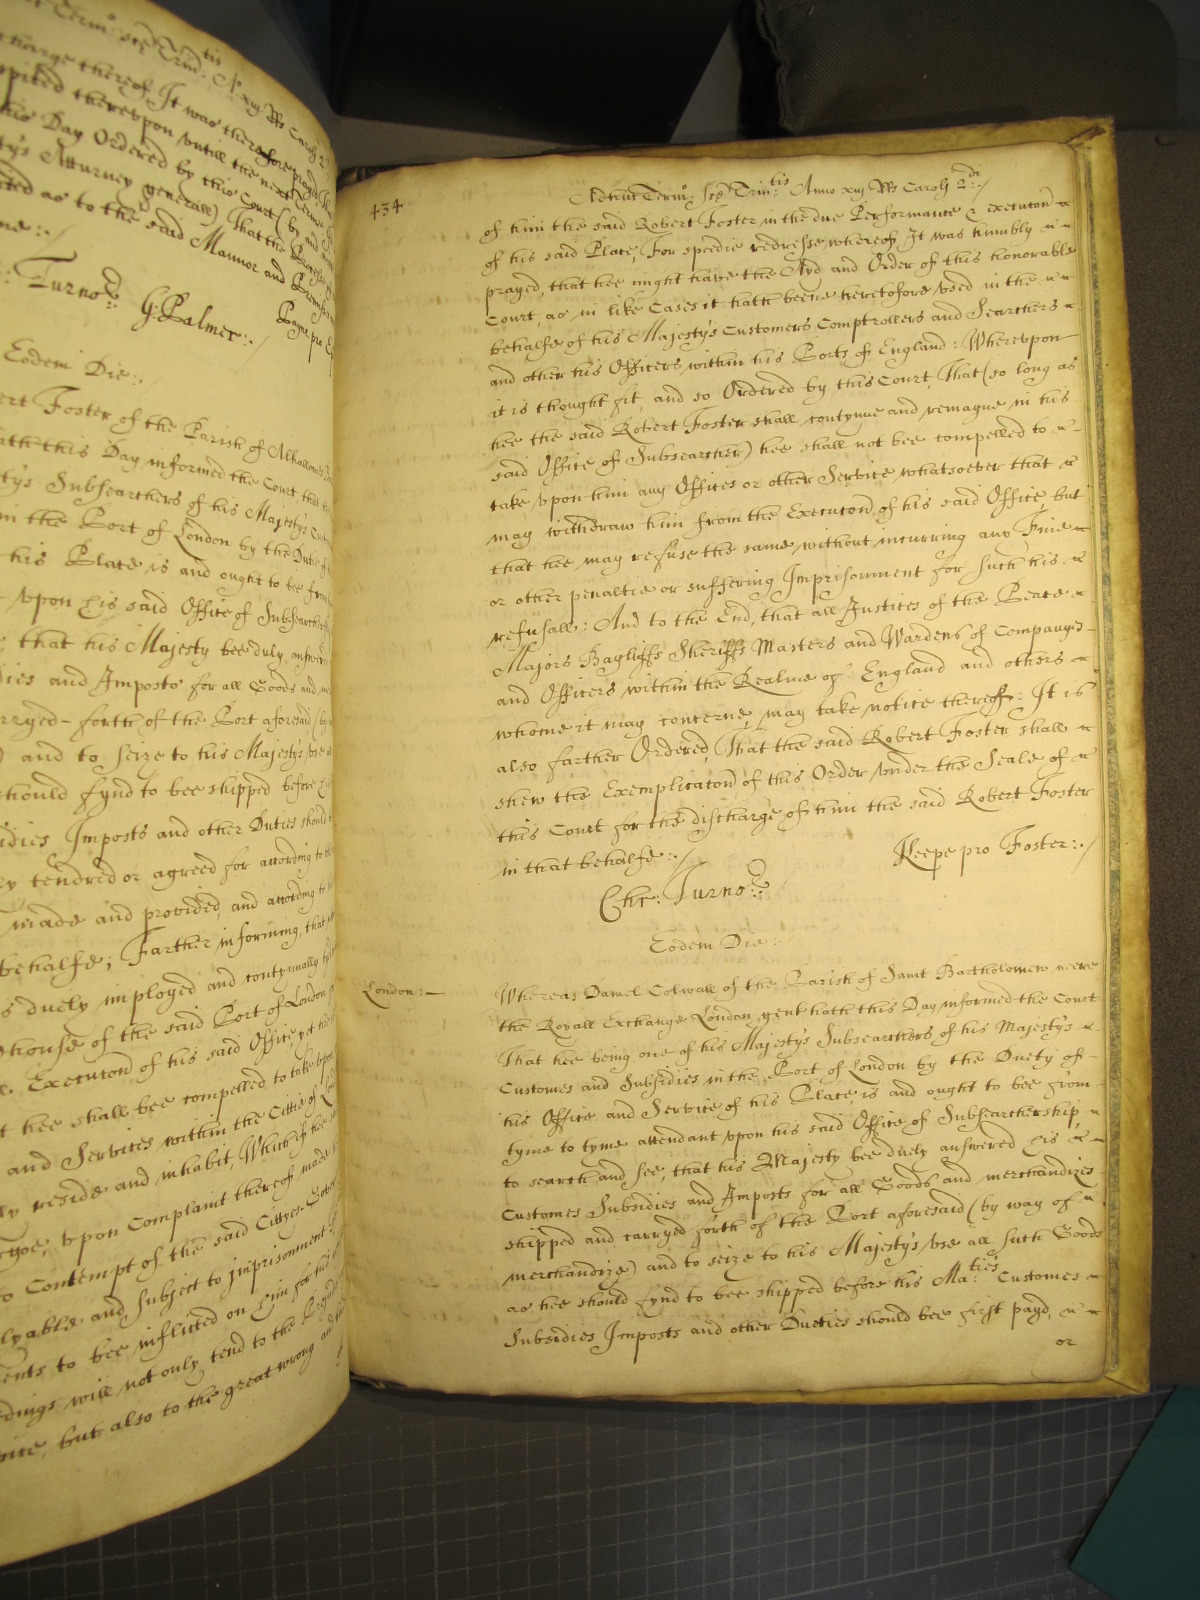 charge thereof, It was therefore prayed
upon untill the next Terme
this Day Ordered by this Court (by
ty's Atturney generall) That the
as to the said Mannor and
Turnor:
G: Palmer:
Eodem Die:
ert Foster of the Parish of Alhallowes
hath this Day informed the Court, that
ty's Subsearchers of his Majesty's
in the Port of London by the Dutie
his Place is and ought to bee from
vpon his said Office of
that his Majesty bee duly answered
dies and Imposts for all Goods and
rryed forth of the Port aforesaid (by
) and to seize to his Majesty's vse
should fynd to bee shipped before
idies Imposts and other Duties should
ly tendred or agreed for according to
made and provided, and according to
behalfe; Farther informing, that
s duely imployed and contynually
house of the said Port of London
Execucon of his said Office, yet
t hee shall bee compelled to take vpon
and Services within the Cittie of
ly reside and inhabit, Which if hee
vpon Complaint thereof made
Contempt of the said Cittyes
and subject to imprisonment
ents to bee inflicted on him for his
dings will not only tend to the
but also to the great wrong
434
Adhuc Termi: Sce Trin:tis Anno xiij Rs Caroli 2di:/
of him the said Robert Foster in the due Performance & execucon
of his said Place, For speedie redresse whereof It was humbly
prayed, that hee might have the Ayd and Order of this honorable
Court, as in like Cases it hath beene heretofore vsed in the
behalfe of his Majesty's Customers Comptrollers and Searchers
and other his Officers within his Ports of England: Wherevpon
it is thought fit, and so Ordered by this Court, That (so long as
hee the said Robert Foster shall contynue and remayne in his
said Office of Subsearcher) hee shall not bee compelled to
take vpon him any Offices or other Service whatsoever that
may withdraw him from the Execucon of his said Office but
that hee may refuse the same without incurring any Fine
or other penaltie or suffering Imprisonment for such his
refusall: And to the End, that all Justices of the Peace
Majors Bayliffs Sheriffs Masters and Wardens of Companyes
and Officers within the Realme of England and others
whome it may concerne, may take notice thereof: It is
also farther Ordered, That the said Robert Foster shall
shew the Exemplicacon of this Order vnder the Seale of
this Court for the discharge of him the said Robert Foster
in that behalfe:/
Keepe pro Foster:/
Chr: Turnor:
Eodem Die:
London:
Whereas Daniel Colwall of the Parish of Saint Bartholomew neere
the Royall Exchange London gent hath this Day informed the Court
That hee being one of his Majesty's Subsearchers of his Majesty's
Customes and Subsidies in the Port of London by the Duety of
his Office and Service of his Place is and ought to bee from
tyme to tyme attendant vpon his said Office of Subsearchership,
to search and see, that his Majesty bee duely answered his
Customes Subsidies and Imposts for all Goods and merchandizes
shipped and carryed forth of the Port aforesaid (by way of
merchandize) and to seize to his Majesty's vse all such Goods
as hee should fynd to bee shipped before his Ma:ties Customes
Subsidies Imposts and other Dueties should bee first payd,
or